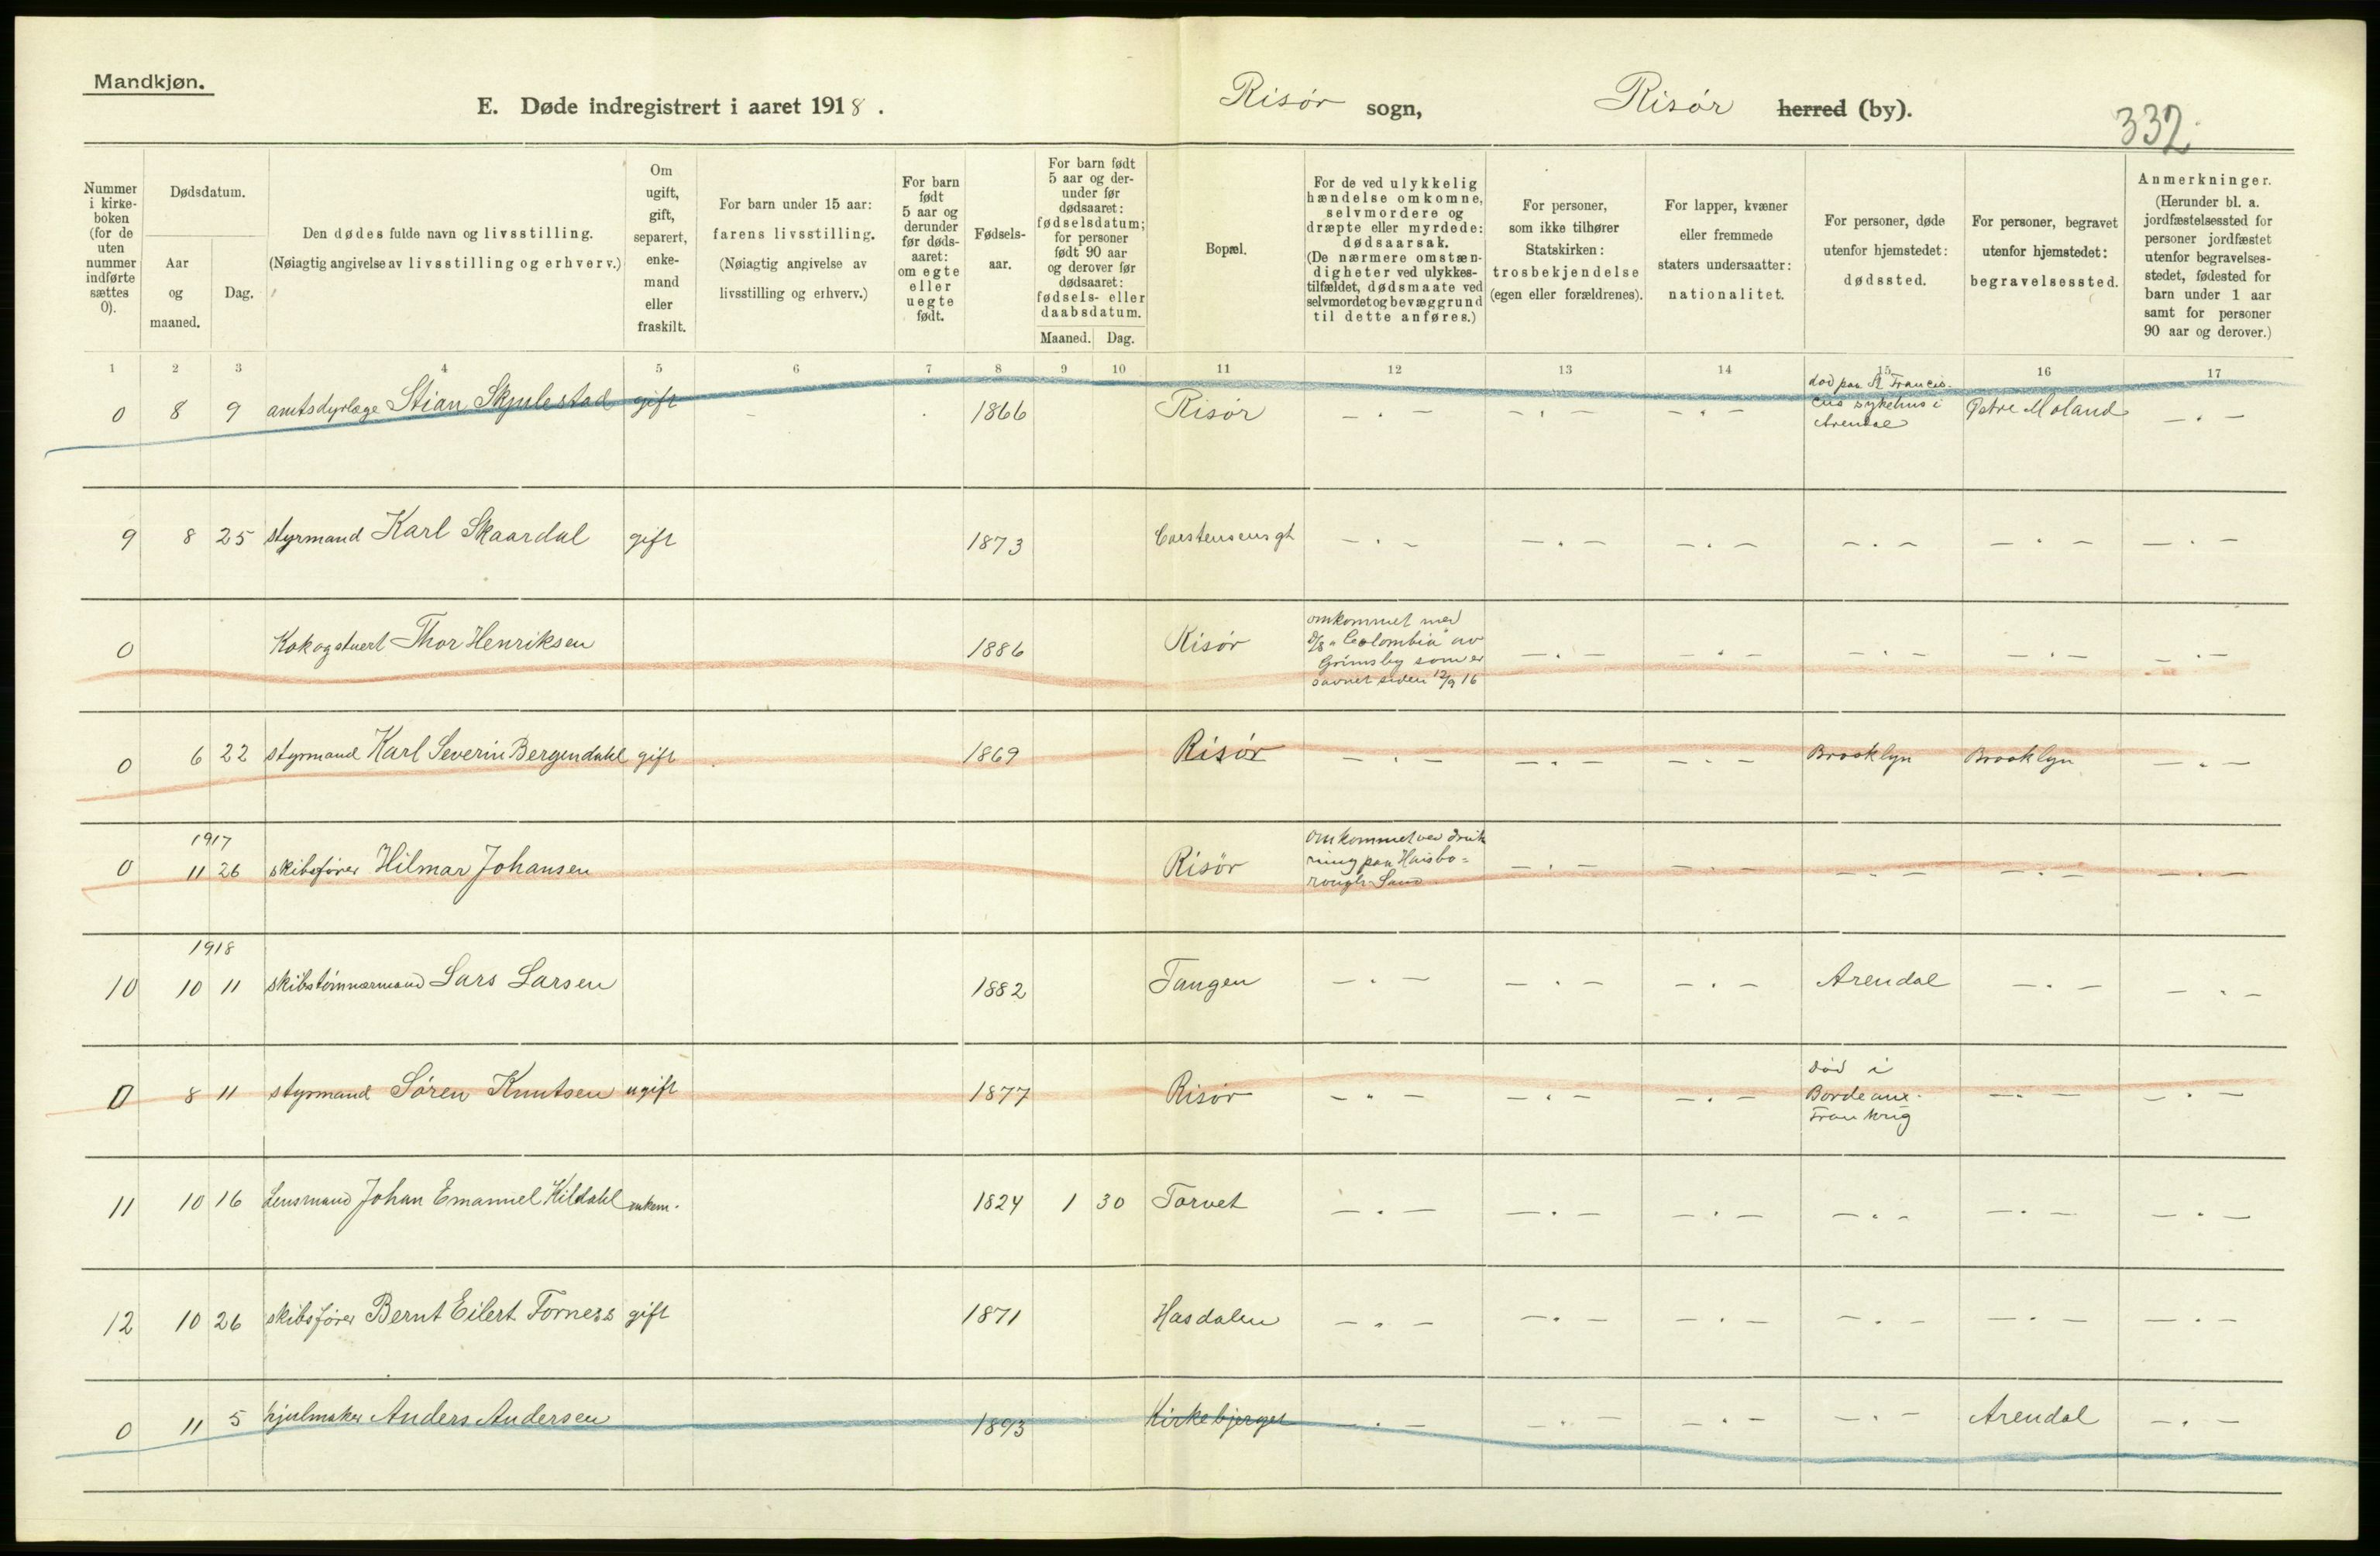 Mandkjøn.
E. Døde indregistrert i aaret 1918. Risør sogn, Risør herred (by).
332
Nummer i kirkeboken (for de uten nummer indførte sættes 0).
Dødsdatum.
Aar og maaned.
Dag.
Den dødes fulde navn og livsstilling.
(Nøiagtig angivelse av livsstilling og erhverv.)
Om ugift, gift, separert, enkemand eller fraskilt.
For barn under 15 aar: farens livsstilling.
(Nøiagtig angivelse av livsstilling og erhverv.)
For barn født 5 aar og derunder før dødsaaret: om egte eller uegte født.
Fødselsaar.
For barn født 5 aar og derunder før dødsaaret: fødselsdatum; for personer født 90 aar og derover før dødsaaret: fødsels- eller daabsdatum.
Maaned. Dag.
Bopæl.
For de ved ulykkelig hændelse omkomne, selvmordere og dræpte eller myrdede: dødsaarsak.
(De nærmere omstændigheter ved ulykkestilfældet, dødsmaate ved selvmordet og bevæggrund til dette anføres.)
For personer, som ikke tilhører Statskirken: trosbekjendelse (egen eller forældrenes).
For lapper, kvæner eller fremmede staters undersaatter: nationalitet.
For personer, døde utenfor hjemstedet: dødssted.
For personer, begravet utenfor hjemstedet: begravelsessted.
Anmerkninger.
(Herunder bl. a. jordfæstelsessted for personer jordfæstet utenfor begravelsesstedet, fødested for barn under 1 aar samt for personer 90 aar og derover.)
1 2 3 4 5 6 7 8 9 10 11 12 13 14 15 16 17
0 8 9 amtsdyrlæge Stian Skjulestad gift - 1866 Risør - . - - . - - . - død paa St Franciscus sykehus i Arendal Østre Moland - . -
9 8 25 styrmand Karl Skaardal gift 1873 Carstensensgt - . - - . - - . - - . - - . - - . -
0 Kok og stuert Thor Henriksen 1886 Risør omkommet med D/S "Colombia" av Grimsby som er savnet siden 12/9 16 - . - - . - - . - - . - - . -
0 6 22 styrmand Karl Severin Bergendahl gift 1869 Risør - . - - . - - . - Brooklyn Brooklyn - . -
1917
0 11 26 skibsfører Hilmar Johansen Risør omkommet ved drukning paa Haisborough Sand - . - - . - - . - - . - - . -
1918
10 10 11 skibstømmermand Lars Larsen 1882 Tangen - . - - . - - . - Arendal - . - - . -
0 8 11 styrmand Søren Knutsen ugift 1877 Risør - . - - . - - . - død i Bordeaux. Frankrig - . - - . -
11 10 16 Lensmand Johan Emanuel Kildahl enkem. 1824 1 30 Torvet - . - - . - - . - - . - - . - - . -
12 10 26 skibsfører Bernt Eilert Forness gift 1871 Hasdalen - . - - . - - . - - . - - . - - . -
0 11 5 hjulmaker Anders Andersen 1893 Kirkebjerget - . - - . - - . - - . - Arendal - . -